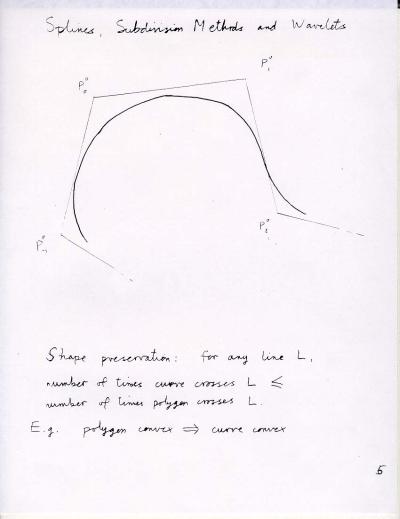 Splines, Subdivision Methods and Wavelets
P₀⁰
P₁⁰
P₂⁰
Shape preservation: for any line L,
number of times curve crosses L ≤
number of times polygon crosses L.
E.g. polygon convex ⇒ curve convex
5